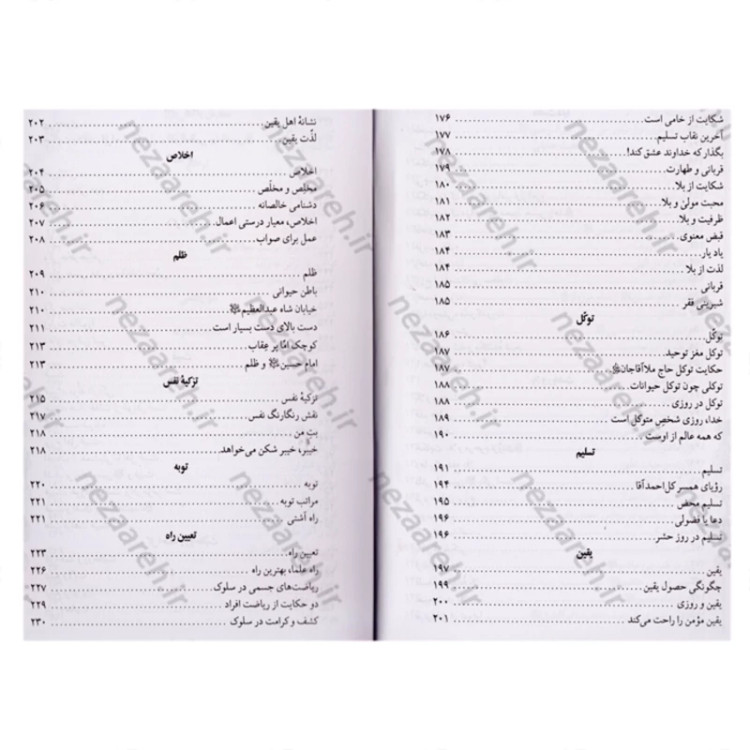 شکایت از خامی است ........ ۱۷۶
آخرین نقاب تسلیم ........ ۱۷۷
بگذار که خداوند عشق کند! ........ ۱۷۸
قربانی و طهارت ........ ۱۷۹
شکایت از بلا ........ ۱۸۰
محبت مولیٰ و بلا ........ ۱۸۱
ظرفیت و بلا ........ ۱۸۲
قبض معنوی ........ ۱۸۳
یاد یار ........ ۱۸۴
لذت از بلا ........ ۱۸۴
قربانی ........ ۱۸۵
شیرینی فقر ........ ۱۸۵
توکّل
توکّل ........ ۱۸۶
توکل مغز توحید ........ ۱۸۷
حکایت توکل حاج ملاآقاجان ........ ۱۸۷
توکلی چون توکل حیوانات ........ ۱۸۸
توکل در روزی ........ ۱۸۸
خدا، روزی شخصِ متوکل است ........ ۱۸۹
که همه عالم از اوست ........ ۱۹۰
تسلیم
تسلیم ........ ۱۹۱
رؤیای همسر کل‌احمدآقا ........ ۱۹۴
تسلیم محض ........ ۱۹۵
دعا یا فضولی ........ ۱۹۶
تسلیم در روز حشر ........ ۱۹۶
یقین
یقین ........ ۱۹۷
چگونگی حصول یقین ........ ۱۹۹
یقین و روزی ........ ۲۰۰
یقین مؤمن را راحت می‌کند ........ ۲۰۱
نشانهٔ اهل یقین ........ ۲۰۲
لذّت یقین ........ ۲۰۳
اخلاص
اخلاص ........ ۲۰۴
مخلِص و مخلَص ........ ۲۰۵
دشنامی خالصانه ........ ۲۰۶
اخلاص، معیار درستی اعمال ........ ۲۰۷
عمل برای صواب ........ ۲۰۸
ظلم
ظلم ........ ۲۰۹
باطن حیوانی ........ ۲۱۰
خیابان شاه عبدالعظیم ........ ۲۱۰
دست بالای دست بسیار است ........ ۲۱۱
کوچک امّا پر عِقاب ........ ۲۱۳
امام حسین و ظلم ........ ۲۱۳
تزکیهٔ نفس
تزکیهٔ نفس ........ ۲۱۵
نقش رنگارنگ نفس ........ ۲۱۷
بت من ........ ۲۱۸
خیبر، خیبر شکن می‌خواهد ........ ۲۱۸
توبه
توبه ........ ۲۲۰
مراتب توبه ........ ۲۲۱
راه آشتی ........ ۲۲۱
تعیین راه
تعیین راه ........ ۲۲۳
راه علما، بهترین راه ........ ۲۲۶
ریاضت‌های جسمی در سلوک ........ ۲۲۷
دو حکایت از ریاضت افراد ........ ۲۲۹
کشف و کرامت در سلوک ........ ۲۳۰
nezaareh.ir
nezaareh.ir
nezaareh.ir
nezaareh.ir
nezaareh.ir
nezaareh.ir
nezaareh.ir
nezaareh.ir
nezaareh.ir